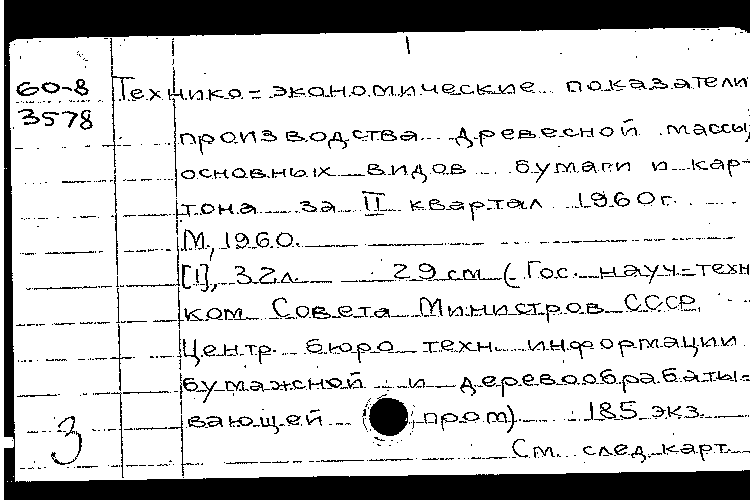 60-8 Технико=экономические показатели
3578
производства древесной массы,
основных видов бумаги и кар-
тона за II квартал 1960г.
М, 1960.
[1], 32л. 29 см (Гос. науч=техн
ком Совета Министров СССР.
Центр. бюро техн. информации
бумажной и деревообрабаты=
вающей пром). 185 экз.
3
См. след. карт